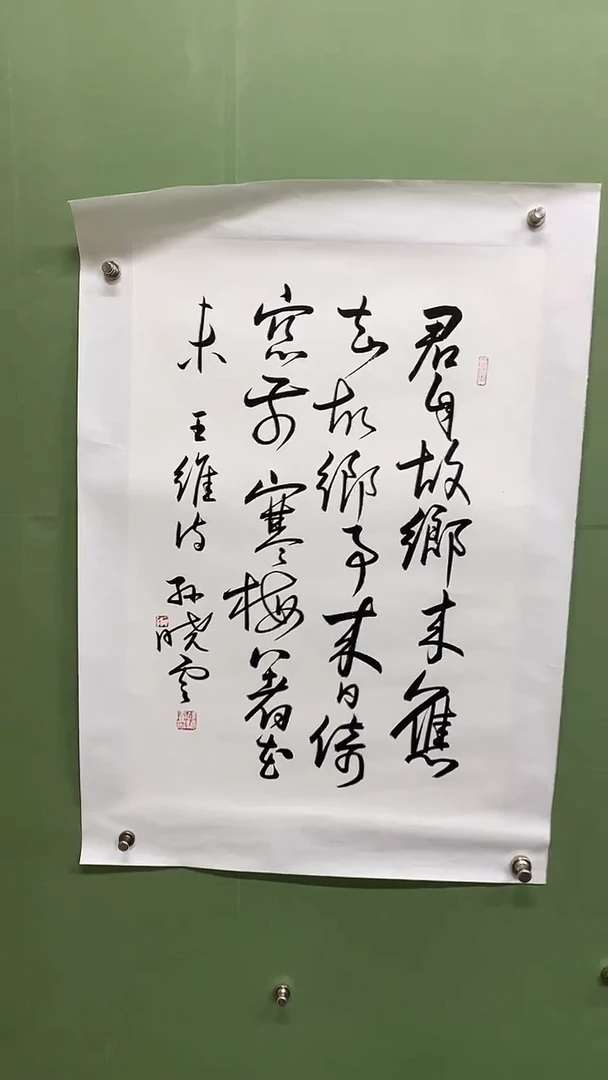 君自故鄉來應
知故鄉事來日綺
窓前寒梅著花
未 王維诗 孙晓雲